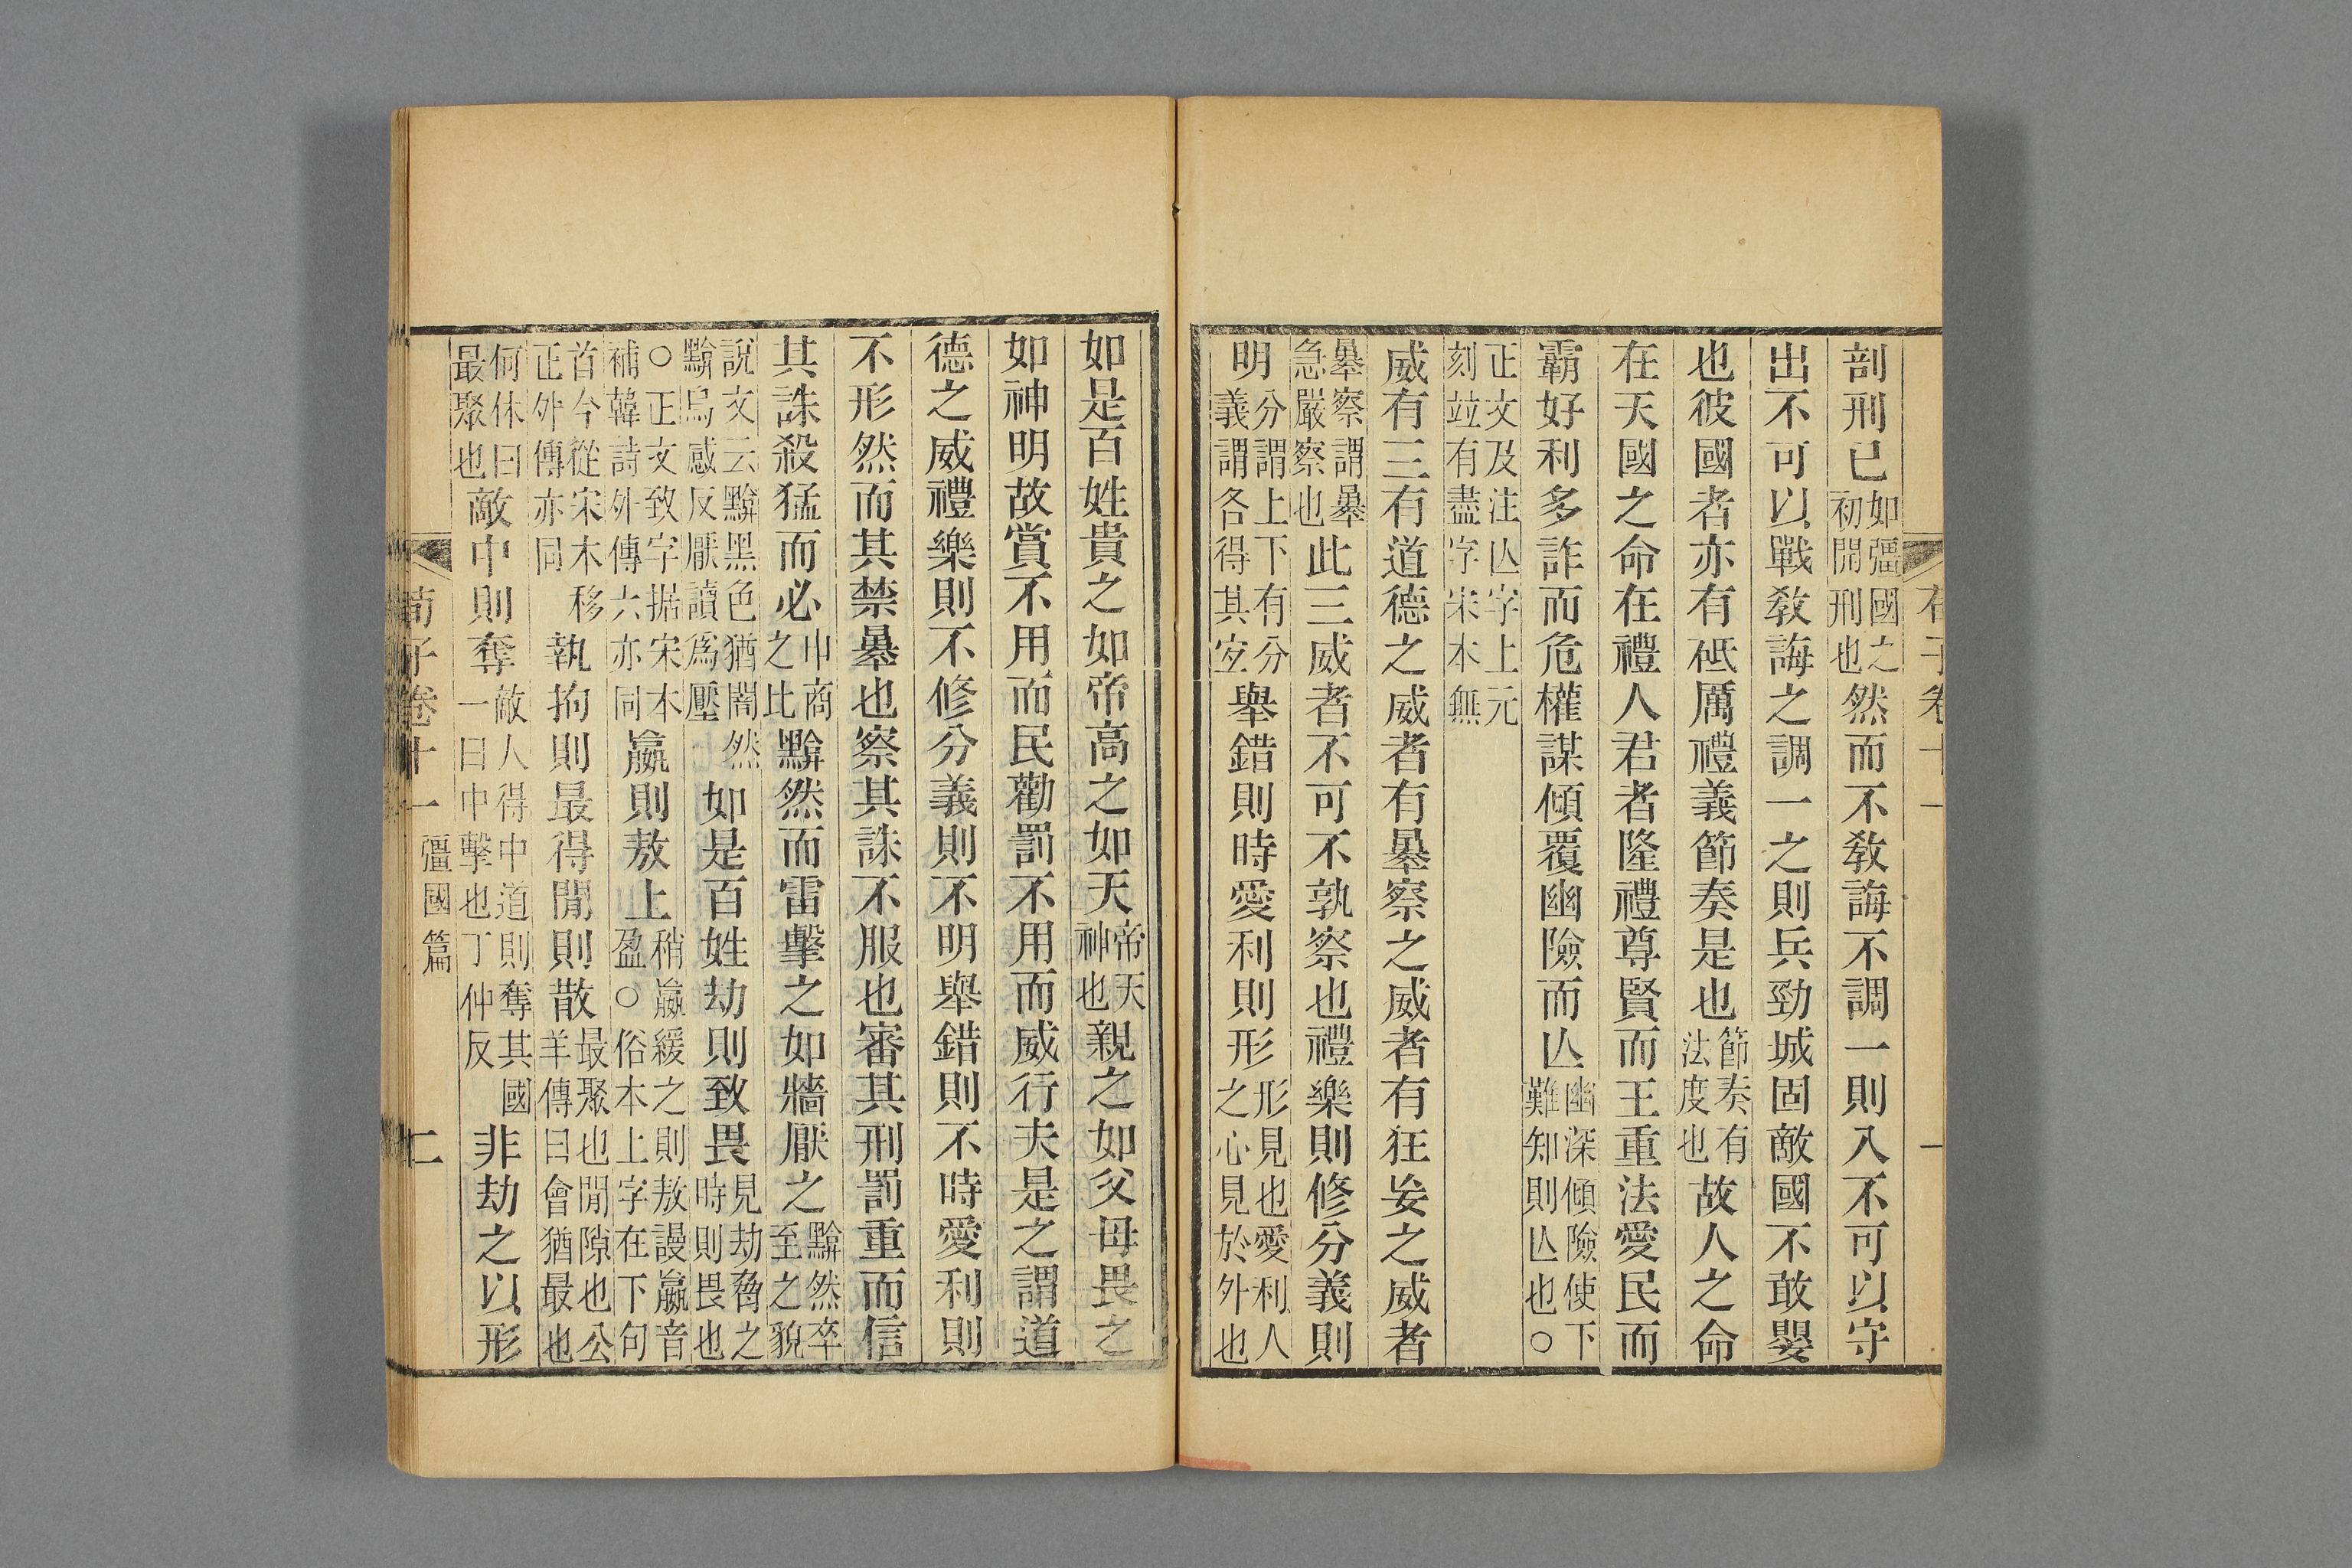 荀子卷十一 一
剖刑已如彊國之初開刑也然而不敎誨不調一則入不可以守
出不可以戰敎誨之調一之則兵勁城固敵國不敢嬰
也彼國者亦有砥厲禮義節奏是也節奏有法度也故人之命
在天國之命在禮人君者隆禮尊賢而王重法愛民而
霸好利多詐而危權謀傾覆幽險而亾幽深傾險使下難知則亾也○
正文及注亾字上元刻竝有盡字宋本無
威有三有道德之威者有㬥察之威者有狂妄之威者
㬥察謂㬥急嚴察也此三威者不可不孰察也禮樂則修分義則
明分謂上下有分義謂各得其宜舉錯則時愛利則形形見也愛利人之心見於外也
如是百姓貴之如帝高之如天帝天神也親之如父母畏之
如神明故賞不用而民勸罰不用而威行夫是之謂道
德之威禮樂則不修分義則不明舉錯則不時愛利則
不形然而其禁㬥也察其誅不服也審其刑罰重而信
其誅殺猛而必申商之比黭然而雷擊之如牆厭之黭然卒至之貌
說文云黭黑色猶闇然黭烏感反厭讀爲壓如是百姓劫則致畏見劫脅之時則畏也
○正文致字据宋本補韓詩外傳六亦同嬴則敖上稍嬴緩之則敖謾嬴音盈○俗本上字在下句
首今從宋本移正外傳亦同執拘則最得閒則散最聚也閒隙也公羊傳曰會猶最也
何休曰最聚也敵中則奪敵人得中道則奪其國一曰中擊也丁仲反非劫之以形
荀子卷十一 彊國篇 二